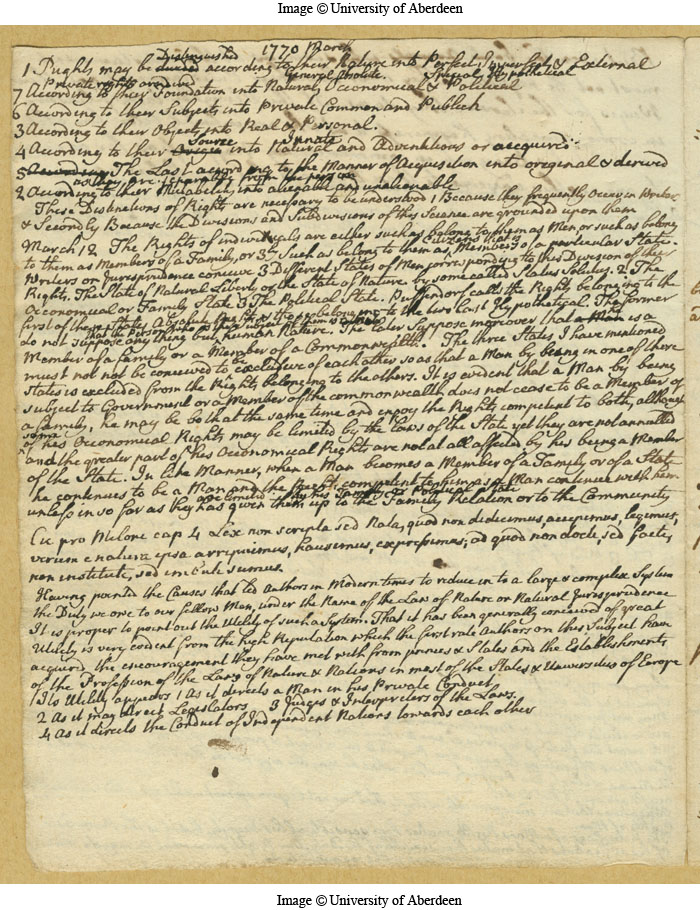 Image © University of Aberdeen
1770 March
Distinguished
1 Rights may be divided according to their Nature into Perfect, Imperfect & External
Private rights are divided General Absolute. Special, Hypothetical
7 According to their Foundation into Natural, Oeconomical & Political
6 According to their Subjects into Private Common and Publick
3 According to their Objects into Real & Personal.
Source Innate
4 According to their Origin into Natural and Adventitious or acquired.
5 According The Last according to the Manner of Acquisition into original & derived
as they are separable from the person
2 According to their Mutability into alienable and unalienable
These Distinctions of Right are necessary to be understood 1 Because they frequently Occur in Writers
& Secondly Because the Divisions and Subdivisions of this Science are grounded upon them
March 12 The Rights of individuals are either such as belong to them as Men or such as belong
Citizens that is
to them as Members of a Family, or 3ly Such as belong to them as Members of a particular State.
Writers on Jurisprudence conceive 3 Different States of Men corresponding to this Division of their
Rights, The State of Natural Liberty or the State of Nature by some called Status Solutus. 2 The
Oeconomical or Family State 3 The Political State. Puffendorf calls the Rights belonging to the
first of these states Absolute Rights & those belonging to the two last Hypothetical. The former
that the Person who is the subject of them is a
do not suppose any thing but human Nature. The later Suppose moreover that a Man is a
Member of a family or a Member of a Commonwealth. The three States I have mentioned
must not not be conceived to exclusive of each other so as that a Man by being in one of these
states is excluded from the Rights belonging to the others. It is evident that a Man by being
subject to Government or a Member of the commonwealth does not cease to be a Member of
a family, he may be both at the same time and enjoy the Rights competent to both, although
some
of his Oeconomical Rights may be limited by the laws of the State yet they are not annulled
and the greater part of his Oeconomical Rights are not at all affected by his being a Member
of the State. In like Manner, when a Man becomes a Member of a Family or of a State
he continues to be a Man and the Rights competent to him as a Man continue with him
are limited by his Family or Political State
unless in so far as they has given them up to the Family Relation or to the Community
Cic pro Milone cap 4 Lex non scripta sed Nata, quod non dedicimus, accepimus, legimus,
verum e natura ipsa arripuimus, hausimus, expressimus; ad quod non docti, sed facti,
non instituti, sed imbuti sumus.
Having pointed the Causes that led Authors in Modern times to reduce in to a large & complex System
the Duty we owe to our fellow Men, under the Name of the Law of Nature or Natural Jurisprudence
It is proper to point out the Utility of such a System. That it has been generally conceived of great
Utility is very evident from the high Reputation which the first rate Authors on this Subject have
acquired the encouragement they have met with from princes & States and the Establishments
of the Profession of the Law of Nature & Nations in most of the States & Universities of Europe
1 Its Utility appears 1 As it directs a Man in his Private Conduct
2 As it may direct Legislators 3 Judges & Interpreters of the Laws.
4 As it directs the Conduct of Independent Nations towards each other
Image © University of Aberdeen